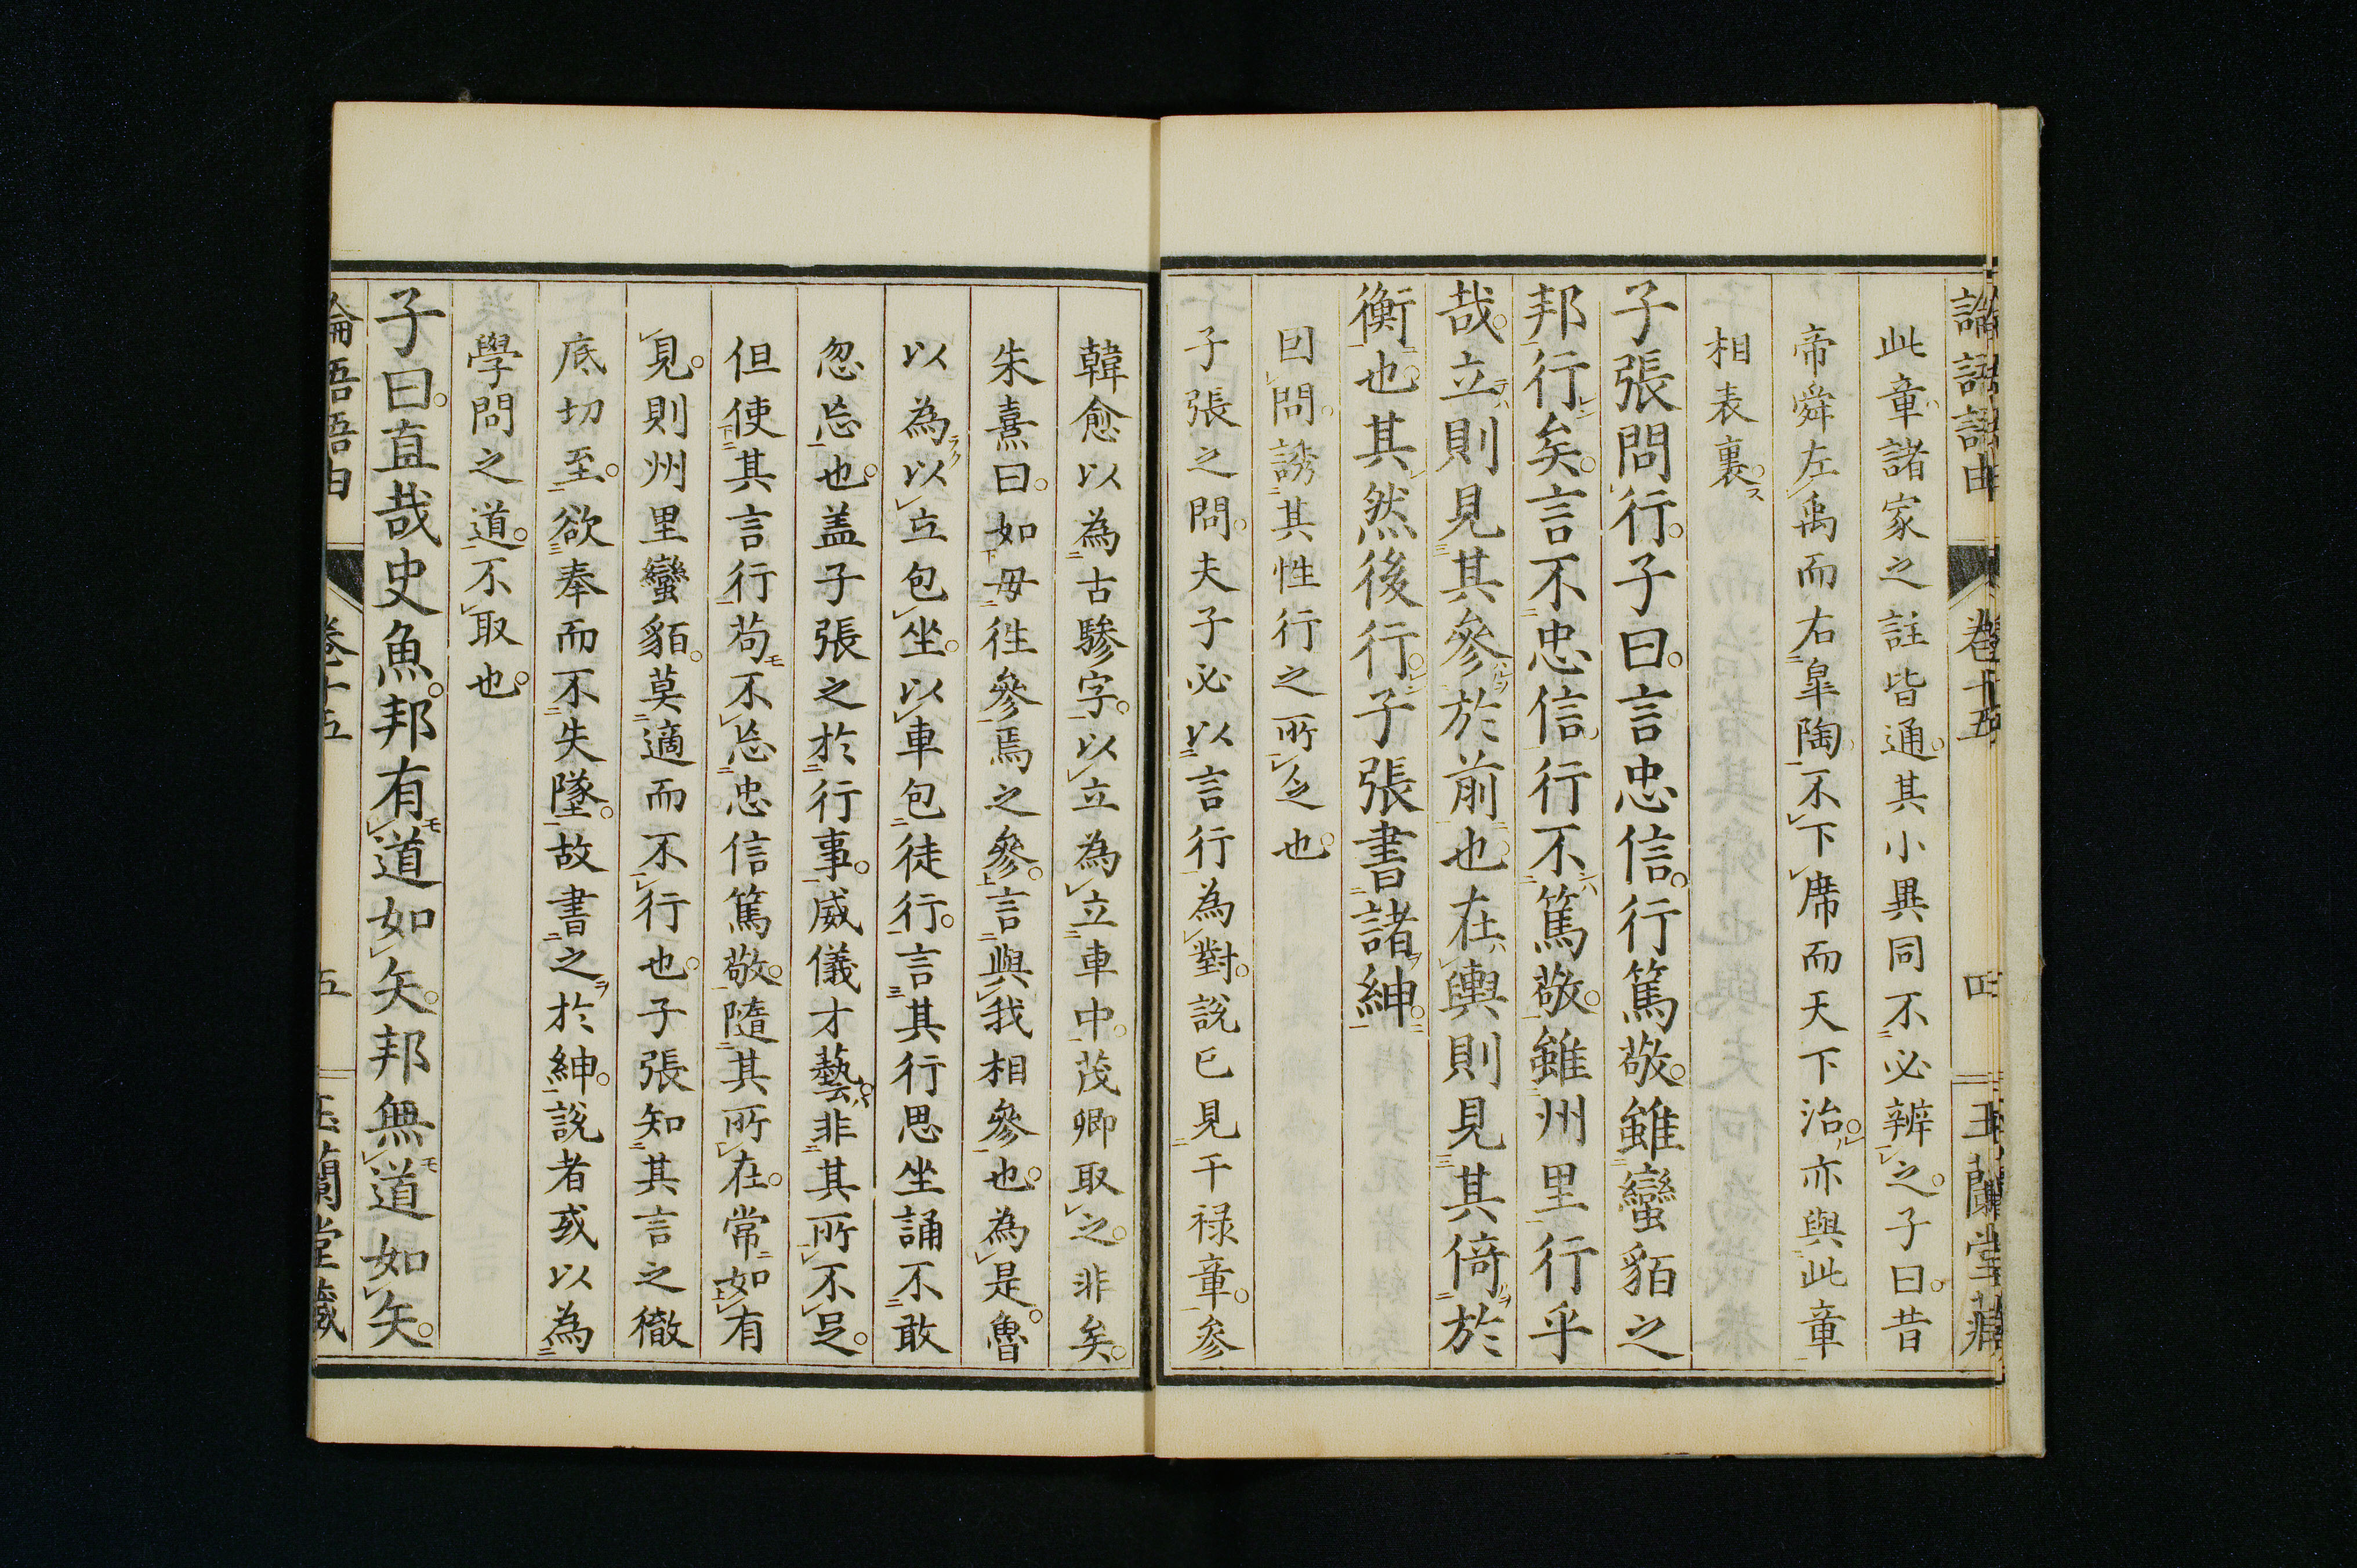 論語語由 卷十五 四 玉蘭堂藏
此章諸家之註皆通其小異同不必辨之子曰昔
帝舜左禹而右皐陶不下席而天下治亦與此章
相表裏
子張問行子曰言忠信行篤敬雖蠻貊之
邦行矣言不忠信行不篤敬雖州里行乎
哉立則見其參於前也在輿則見其倚於
衡也其然後行子張書諸紳
因問誘其性行之所乏也
子張之問夫子必以言行為對説已見干禄章參
韓愈以為古驂字以立為立車中茂卿取之非矣
朱熹曰如毋徃參焉之參言與我相參也為是魯
以為以立包坐以車包徒行言其行思坐誦不敢
忽忘也盖子張之於行事威儀才藝非其所不足
但使其言行苟不忘忠信篤敬隨其所在常如有
見則州里蠻貊莫適而不行也子張知其言之徹
底切至欲奉而不失墜故書之於紳説者或以為
學問之道不取也
子曰直哉史魚邦有道如矢邦無道如矢
論語語由 卷十五 五 玉蘭堂藏